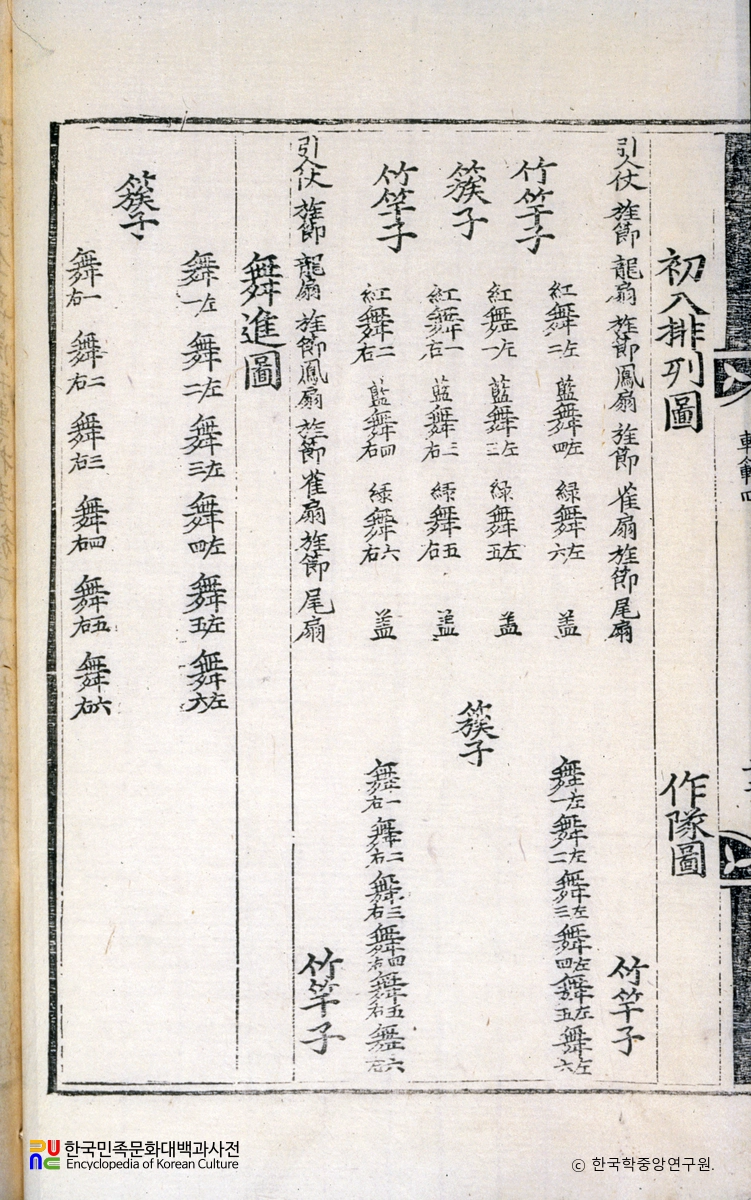 初入排列圖 作隊圖
引人仗 旌節 龍扇 旌節 鳳扇 旌節 雀扇 旌節 尾扇 竹竿子
竹竿子 紅舞左二 藍舞左四 綠舞左六 盖
舞左一 舞左二 舞左三 舞左四 舞左五 舞左六
紅舞左一 藍舞左三 綠舞左五 盖
簇子 紅舞右一 藍舞右三 綠舞右五 盖 簇子
竹竿子 紅舞右二 藍舞右四 綠舞右六 盖
舞右一 舞右二 舞右三 舞右四 舞右五 舞右六
引人仗 旌節 龍扇 旌節 鳳扇 旌節 雀扇 旌節 尾扇 竹竿子
舞進圖
舞左一 舞左二 舞左三 舞左四 舞左五 舞左六
簇子
舞右一 舞右二 舞右三 舞右四 舞右五 舞右六
한국민족문화대백과사전
Encyclopedia of Korean Culture
ⓒ 한국학중앙연구원.